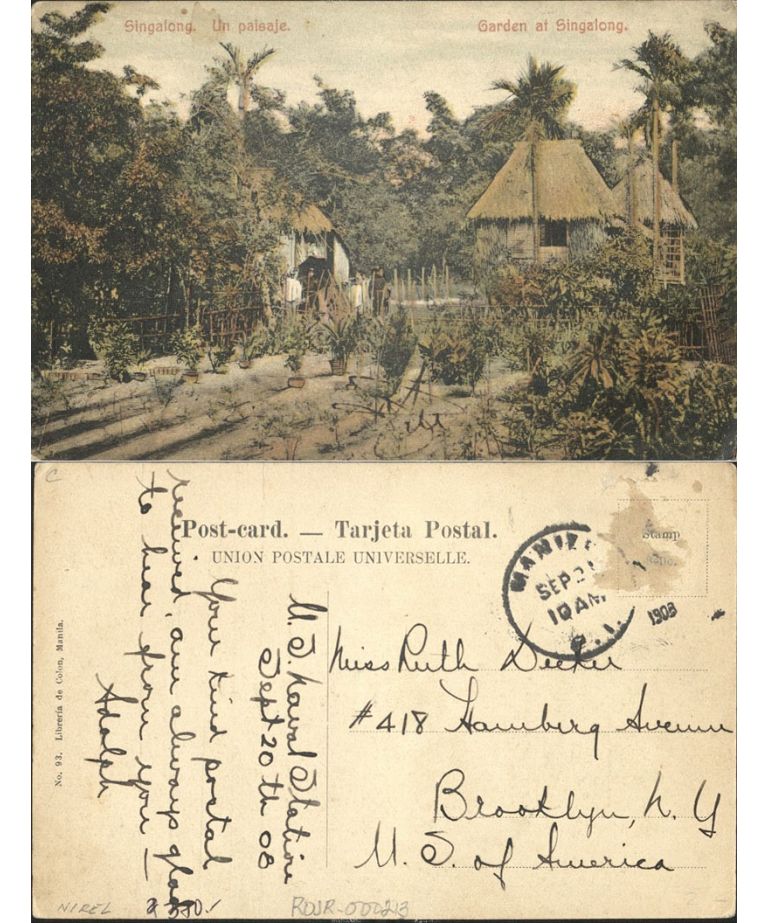 Singalong. Un paisaje.
Garden at Singalong.
Post-card. — Tarjeta Postal.
UNION POSTALE UNIVERSELLE.
Stamp
MANILA
SEP 21
10 AM
P. I.
1908
U. S. Naval Station
Sept 20th 08
Your kind postal
received, am always glad
to hear from you —
Adolph
Miss Ruth Decker
#418 Hamberg Avenue
Brooklyn, N. Y
U. S. of America
No. 93. Librería de Colon, Manila.
C
NIREL
ROJR-000213